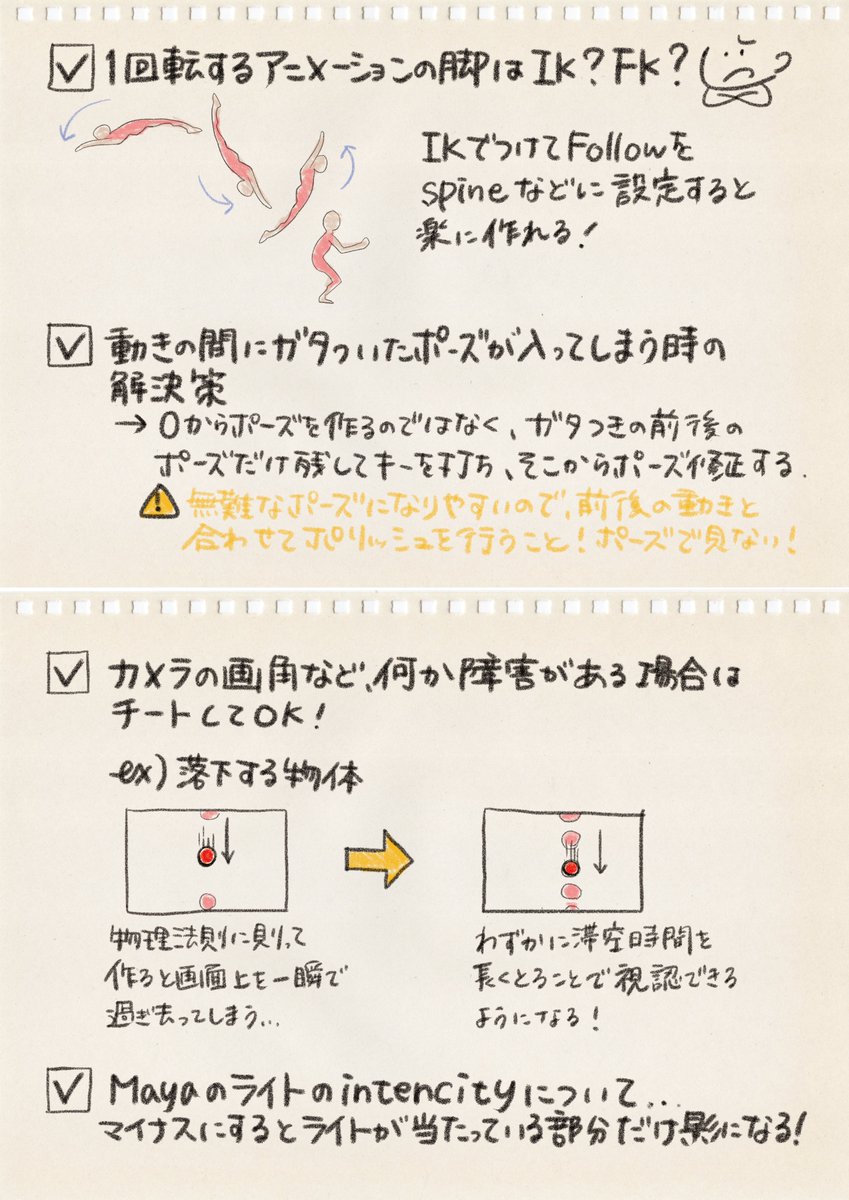 1回転するアニメーションの脚はIK？FK？
IKでつけてFollowを
spineなどに設定すると
楽に作れる！
動きの間にガタついたポーズが入ってしまう時の
解決策
→ 0からポーズを作るのではなく、ガタつきの前後の
ポーズだけ残してキーを打ち、そこからポーズ修正する.
無難なポーズになりやすいので、前後の動きと
合わせてポリッシュを行うこと！ポーズで見ない！
カメラの画角など、何か障害がある場合は
チートしてOK！
ex) 落下する物体
物理法則に則って
作ると画面上を一瞬で
過ぎ去ってしまう...
わずかに滞空時間を
長くとることで視認できる
ようになる！
Mayaのライトのintencityについて...
マイナスにするとライトが当たっている部分だけ影になる！